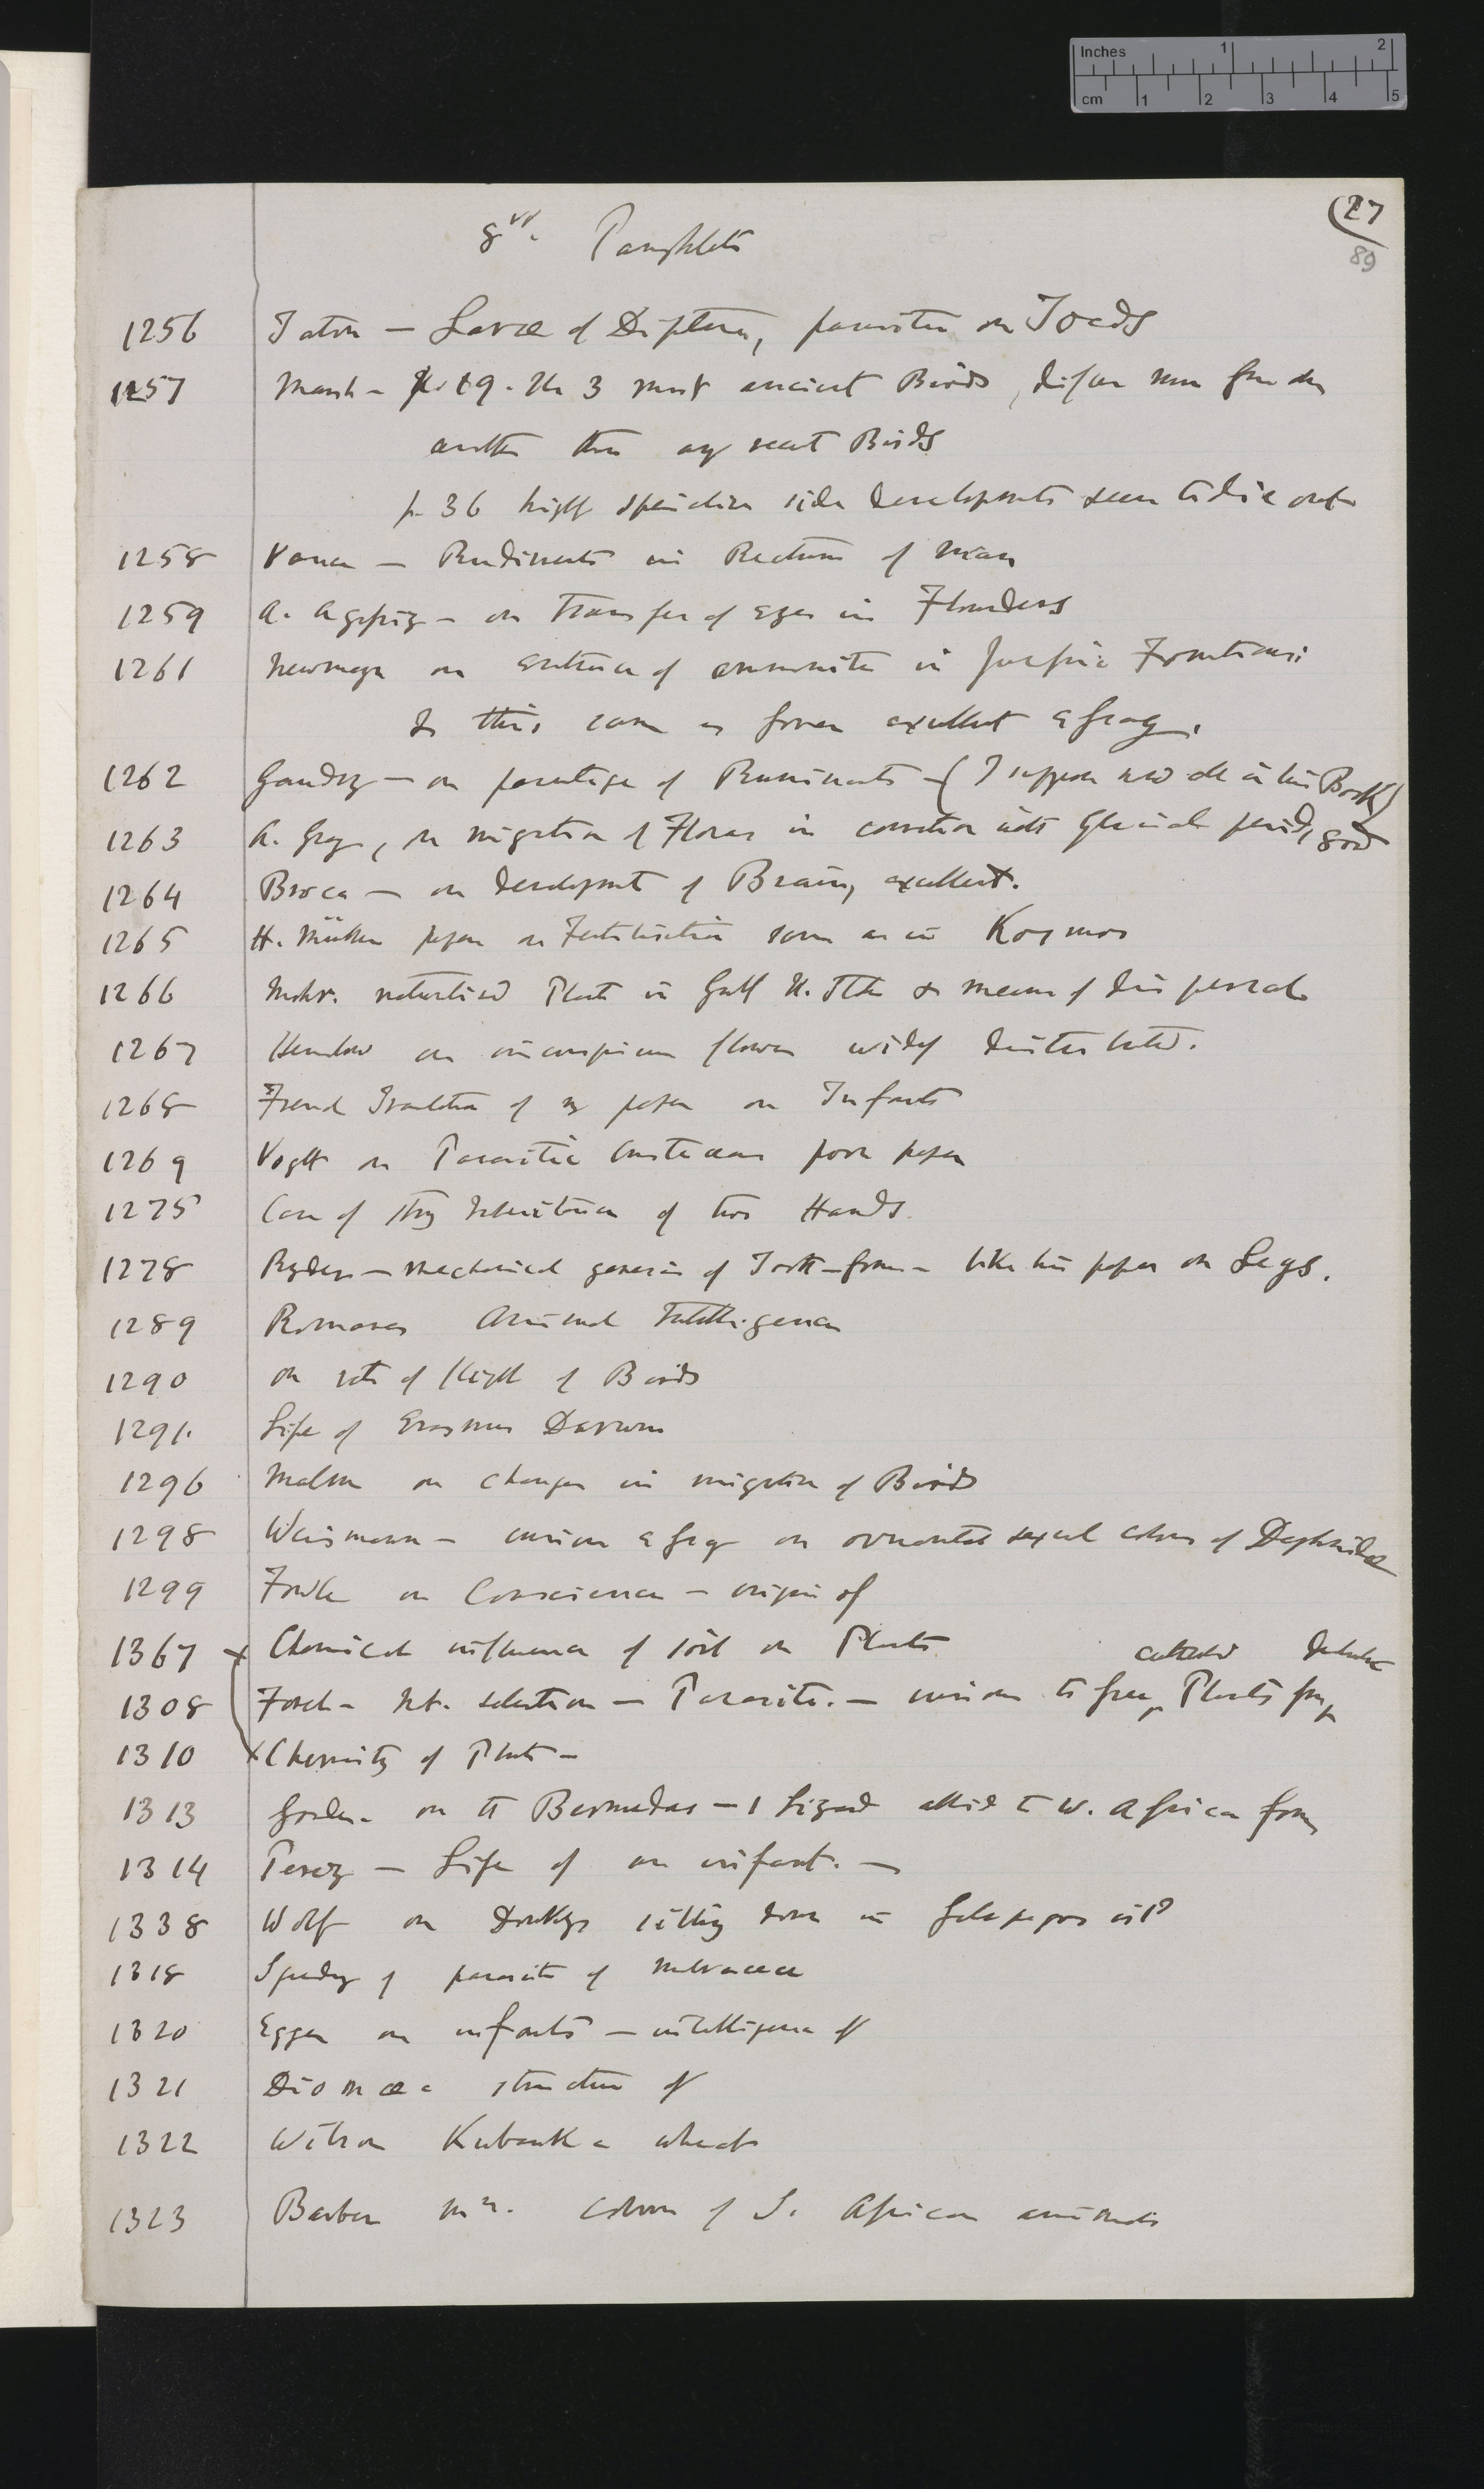 Inches 1 2
cm 1 2 3 4 5
27
89
8vo. Pamphlets
1256 Taton — Larvæ of Diptera, parasitic on Toads
1257 Marsh — p. 19. The 3 most ancient Birds, differ more from one
another than any recent Birds
p. 36 highly specialised side developments seem to die out
1258 — Rudiments in Rectum of Man
1259 A. Agassiz — on Transfer of Eyes in Flounders
1261 Neumayr on existence of ammonites in Formations:
Is this same as former excellent essay.
1262 Gaudry — on parentage of Ruminants — (I suppose now all in his Book)
1263 A. Gray, on migration of Floras in connection with Glacial period, good
1264 Broca — on development of Brain, excellent.
1265 H. Müller paper on Fertilisation same as in Kosmos
1266 Mohr. naturalised Plants in Gulf U. States & means of dispersal
1267 Henslow on inconspicuous flowers widely distributed.
1268 French Translation of my paper on Infants
1269 Vogt on Parasitic Crustaceans poor paper
1275 Case of strong Inheritance of two Hands.
1278 Ryder — mechanical genesis of Tooth-forms — like his paper on Legs.
1289 Romanes Animal Intelligence
1290 on rate of flight of Birds
1291. Life of Erasmus Darwin
1296 Malm on changes in migration of Birds
1298 Weismann — curious essay on ornamental sexual colours of Daphnidæ
1299 Fowle on Conscience — origin of
1367 x Chemical influence of soil on Plants
1308 Focke — Nat. selection — Parasites. — curious to free Plants from
1310 x Chemistry of Plants —
1313 on the Bermudas — 1 Lizard allied to W. African form
1314 Perez — Life of an infant. —
1338 Wolf on Donkeys sitting down in Galapagos isld
1318 of parasite of Malvaceæ
1320 Egger on infants — intelligence of
1321 Dionæa structure of
1322 Wilson Kubanka wheat
1323 Barber Mrs. colours of S. African animals